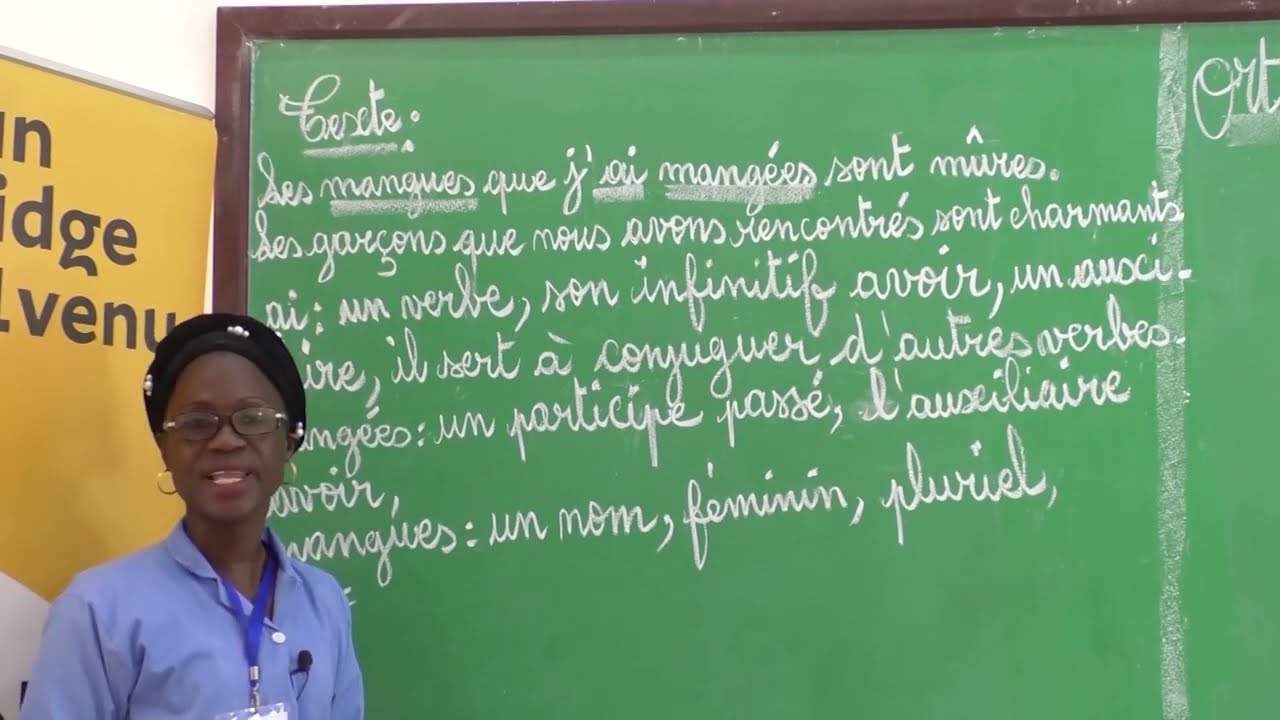 un
idge
1venu
Texte.
Les mangues que j'ai mangées sont mûres.
Les garçons que nous avons rencontrés sont charmants
ai : un verbe, son infinitif avoir, un auxi-
ire, il sert à conjuguer d'autres verbes.
ngées : un participe passé, l'auxiliaire
avoir,
mangues : un nom, féminin, pluriel,
Ort